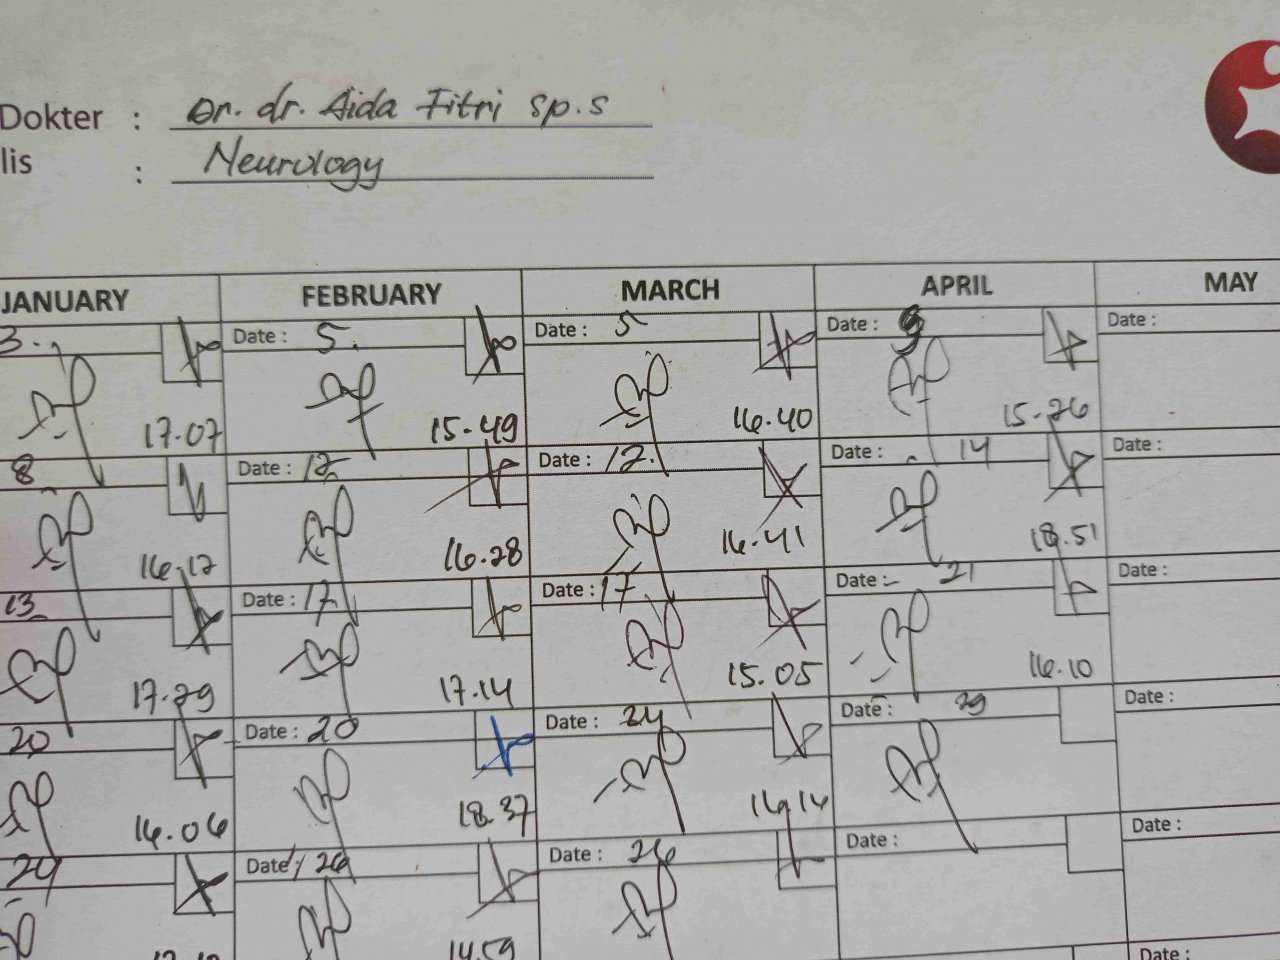 Dokter : Dr. dr. Aida Fitri sp.s
lis : Neurology
JANUARY FEBRUARY MARCH APRIL MAY
3. Date : 5. Date : 5 Date : 9 Date :
17.07 15.49 16.40 15.26
8 Date : 12 Date : 12. Date : 14 Date :
16.12 16.28 16.41 18.51
13 Date : 17 Date : 17 Date : 21 Date :
17.29 17.14 15.05 16.10
20 Date : 20 Date : 24 Date : 29 Date :
16.06 18.37 16.14
29 Date : 26 Date : 26 Date : Date :
14.59
Date :